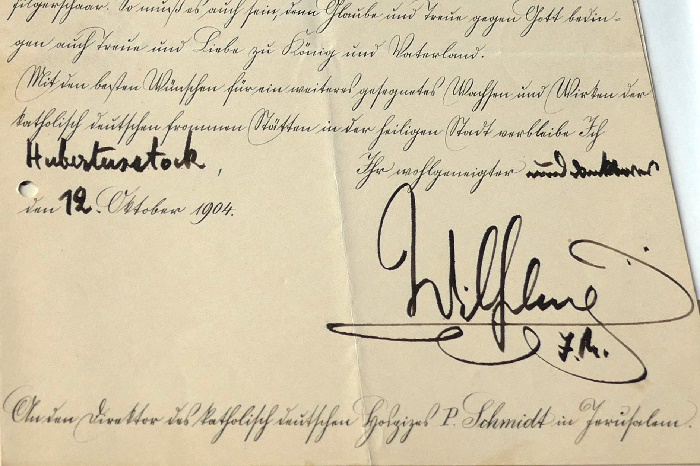 pilgerschaar. So muß es auch sein, denn Glaube und Treue gegen Gott bedin-
gen auch Treue und Liebe zu König und Vaterland.
Mit den besten Wünschen für ein weiteres gesegnetes Wachsen und Wirken der
katholisch deutschen frommen Stätten in der heiligen Stadt verbleibe Ich
Hubertusstock,
Ihr wohlgeneigter und dankbarer
den 12. Oktober 1904.
Wilhelm
I. R.
An den Direktor des katholisch deutschen Hospizes P. Schmidt in Jerusalem.